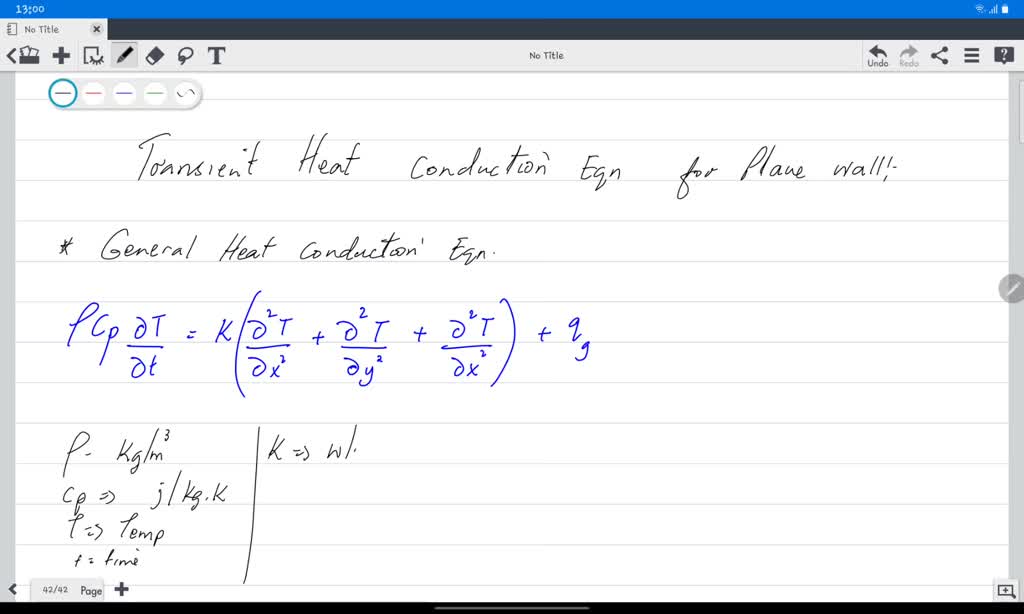 13:00
No Title
T
No Title
Undo
Redo
Transient Heat Conduction Eqn for Plane wall:-
* General Heat Conduction Eqn.
ρCp ∂T/∂t = K(∂²T/∂x² + ∂²T/∂y² + ∂²T/∂x²) + qg
ρ- Kg/m³
K => w/.
Cp => j/kg.K
T => Temp
t = time
42/42 Page